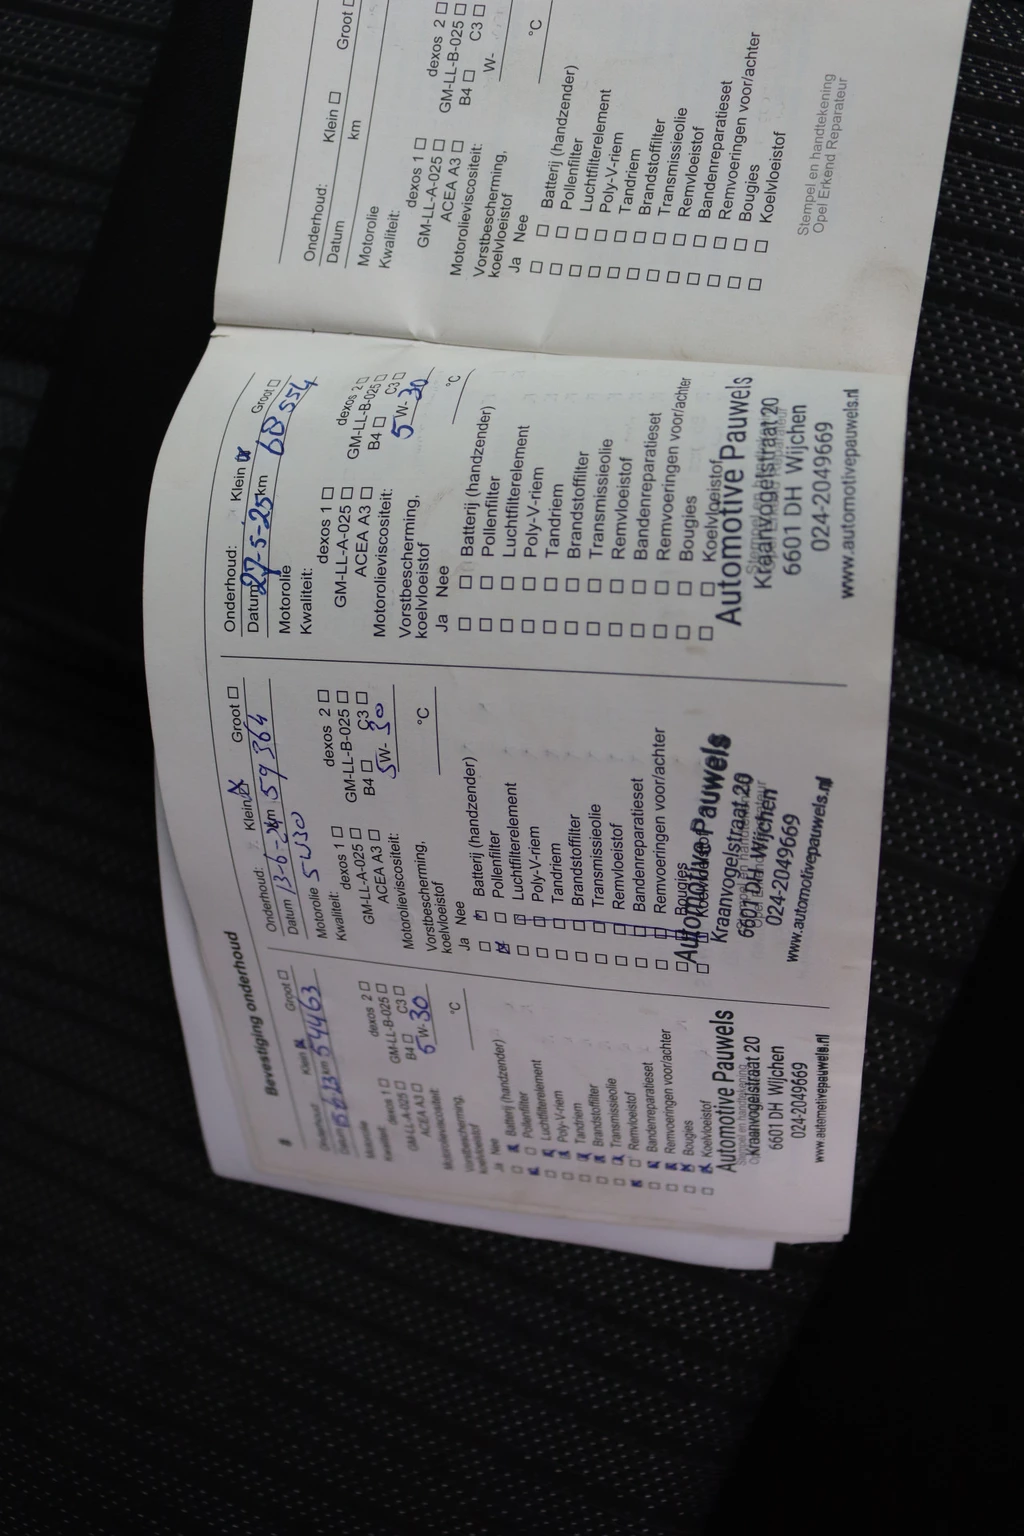 8
Bevestiging onderhoud
Onderhoud: Klein ☒ Groot ☐
Datum km 54463
Motorolie
Kwaliteit: dexos 1 ☐ dexos 2 ☐
GM-LL-A-025 ☐ GM-LL-B-025 ☐
ACEA A3 ☐ B4 ☐ C3 ☐
Motorolieviscositeit: 5 W- 30
Vorstbescherming,
koelvloeistof °C
Ja Nee
☐ ☒ Batterij (handzender)
☒ ☐ Pollenfilter
☐ ☒ Luchtfilterelement
☐ ☒ Poly-V-riem
☐ ☒ Tandriem
☐ ☒ Brandstoffilter
☐ ☒ Transmissieolie
☒ ☐ Remvloeistof
☐ ☒ Bandenreparatieset
☐ ☒ Remvoeringen voor/achter
☐ ☒ Bougies
☐ ☒ Koelvloeistof
Automotive Pauwels
Kraanvogelstraat 20
6601 DH Wijchen
024-2049669
www.automotivepauwels.nl
Onderhoud: Klein ☒ Groot ☐
Datum 13-6-24 km 59364
Motorolie 5W30
Kwaliteit: dexos 1 ☐ dexos 2 ☐
GM-LL-A-025 ☐ GM-LL-B-025 ☐
ACEA A3 ☐ B4 ☐ C3 ☐
Motorolieviscositeit: 5 W- 30
Vorstbescherming,
koelvloeistof °C
Ja Nee
☐ ☒ Batterij (handzender)
☒ ☐ Pollenfilter
☐ ☐ Luchtfilterelement
☐ ☐ Poly-V-riem
☐ ☐ Tandriem
☐ ☐ Brandstoffilter
☐ ☐ Transmissieolie
☐ ☐ Remvloeistof
☐ ☐ Bandenreparatieset
☐ ☐ Remvoeringen voor/achter
☐ ☐ Bougies
☐ ☐ Koelvloeistof
Automotive Pauwels
Kraanvogelstraat 20
6601 DH Wijchen
024-2049669
www.automotivepauwels.nl
Onderhoud: Klein ☒ Groot ☐
Datum 27-5-25 km 68554
Motorolie
Kwaliteit: dexos 1 ☐ dexos 2 ☐
GM-LL-A-025 ☐ GM-LL-B-025 ☐
ACEA A3 ☐ B4 ☐ C3 ☐
Motorolieviscositeit: 5 W- 30
Vorstbescherming,
koelvloeistof °C
Ja Nee
☐ ☐ Batterij (handzender)
☐ ☐ Pollenfilter
☐ ☐ Luchtfilterelement
☐ ☐ Poly-V-riem
☐ ☐ Tandriem
☐ ☐ Brandstoffilter
☐ ☐ Transmissieolie
☐ ☐ Remvloeistof
☐ ☐ Bandenreparatieset
☐ ☐ Remvoeringen voor/achter
☐ ☐ Bougies
☐ ☐ Koelvloeistof
Automotive Pauwels
Kraanvogelstraat 20
6601 DH Wijchen
024-2049669
www.automotivepauwels.nl
Onderhoud: Klein ☐ Groot ☐
Datum km
Motorolie
Kwaliteit: dexos 1 ☐ dexos 2 ☐
GM-LL-A-025 ☐ GM-LL-B-025 ☐
ACEA A3 ☐ B4 ☐ C3 ☐
Motorolieviscositeit: W-
Vorstbescherming,
koelvloeistof °C
Ja Nee
☐ ☐ Batterij (handzender)
☐ ☐ Pollenfilter
☐ ☐ Luchtfilterelement
☐ ☐ Poly-V-riem
☐ ☐ Tandriem
☐ ☐ Brandstoffilter
☐ ☐ Transmissieolie
☐ ☐ Remvloeistof
☐ ☐ Bandenreparatieset
☐ ☐ Remvoeringen voor/achter
☐ ☐ Bougies
☐ ☐ Koelvloeistof
Stempel en handtekening
Opel Erkend Reparateur